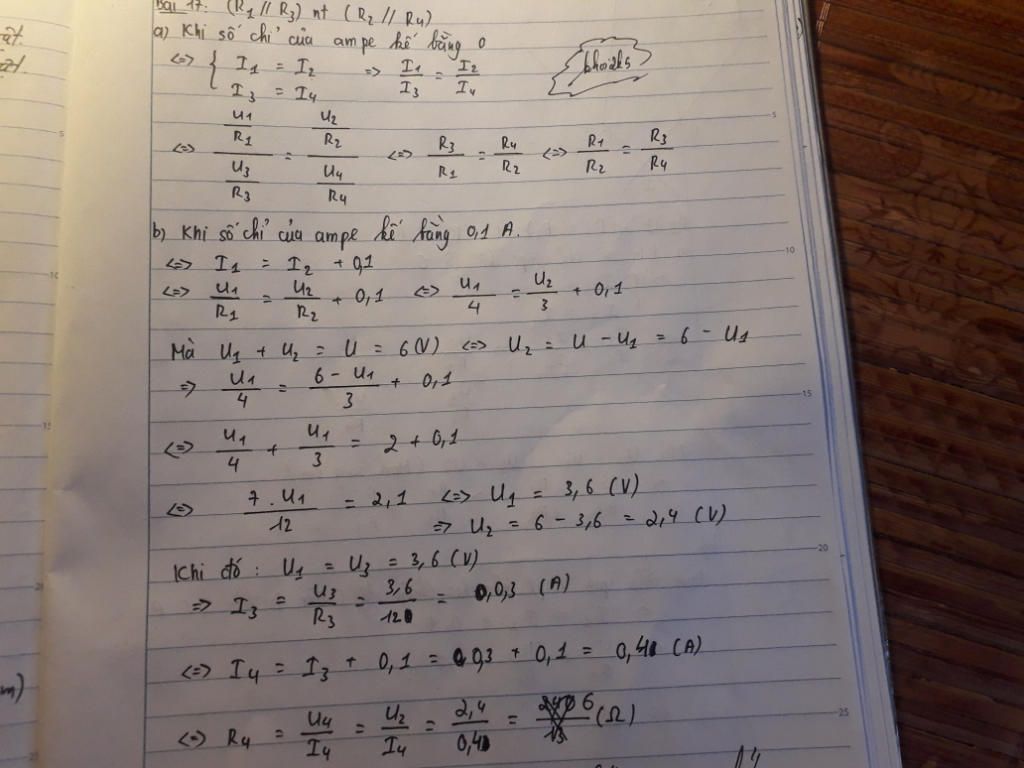 Bài 17: (R1 // R3) nt (R2 // R4)
a) Khi số chỉ của ampe kế bằng 0
<=> { I1 = I2 => I1/I3 = I2/I4
I3 = I4
<=> (U1/R1)/(U3/R3) = (U2/R2)/(U4/R4) <=> R3/R1 = R4/R2 <=> R1/R2 = R3/R4
b) Khi số chỉ của ampe kế bằng 0,1 A.
<=> I1 = I2 + 0,1
<=> U1/R1 = U2/R2 + 0,1 <=> U1/4 = U2/3 + 0,1
Mà U1 + U2 = U = 6 (V) <=> U2 = U - U1 = 6 - U1
=> U1/4 = (6 - U1)/3 + 0,1
<=> U1/4 + U1/3 = 2 + 0,1
<=> 7 . U1/12 = 2,1 <=> U1 = 3,6 (V)
=> U2 = 6 - 3,6 = 2,4 (V)
Khi đó : U1 = U3 = 3,6 (V)
=> I3 = U3/R3 = 3,6/12 = 0,3 (A)
<=> I4 = I3 + 0,1 = 0,3 + 0,1 = 0,4 (A)
<=> R4 = U4/I4 = U2/I4 = 2,4/0,4 = 6 (Ω)
5
10
15
20
25